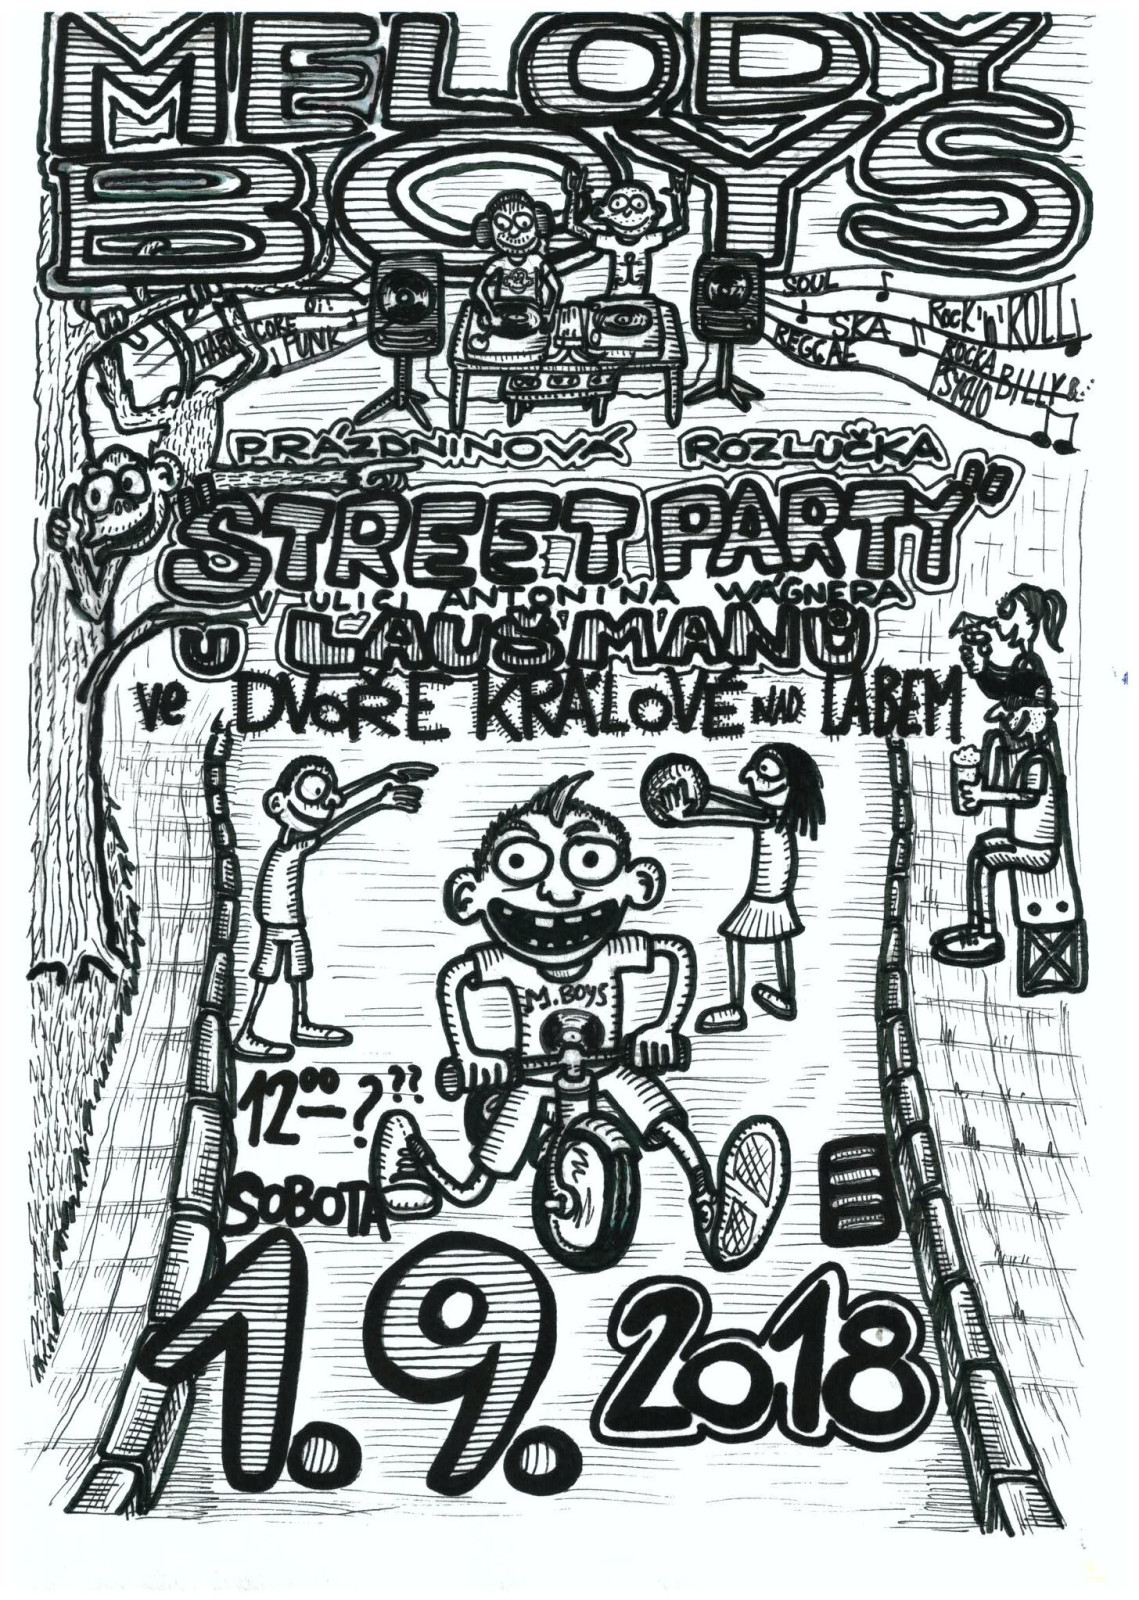 MELODY
BOYS
OI!
HARD CORE
PUNK
SOUL
SKA
REGGAE
ROCK 'n' ROLL
ROCKA
PSYCHO BILLY &..
PRÁZDNINOVÁ ROZLUČKA
"STREET PARTY"
V ULICI ANTONÍNA WAGNERA
U LAUŠMANŮ
ve DVOŘE KRÁLOVÉ NAD LABEM
M. BOYS
12⁰⁰ — ? ??
SOBOTA
1. 9. 2018